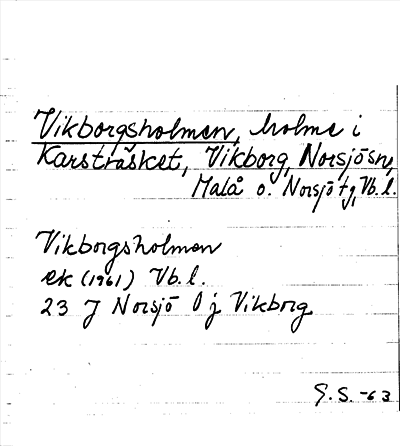 Vikborgsholmen, holme i
Karsträsket, Vikborg, Norsjösn,
Malå o. Norsjö tg, Vb.l.
Vikborgsholmen
ek (1961) Vb.l.
23 J Norsjö 0 j Vikborg
G.S. -63